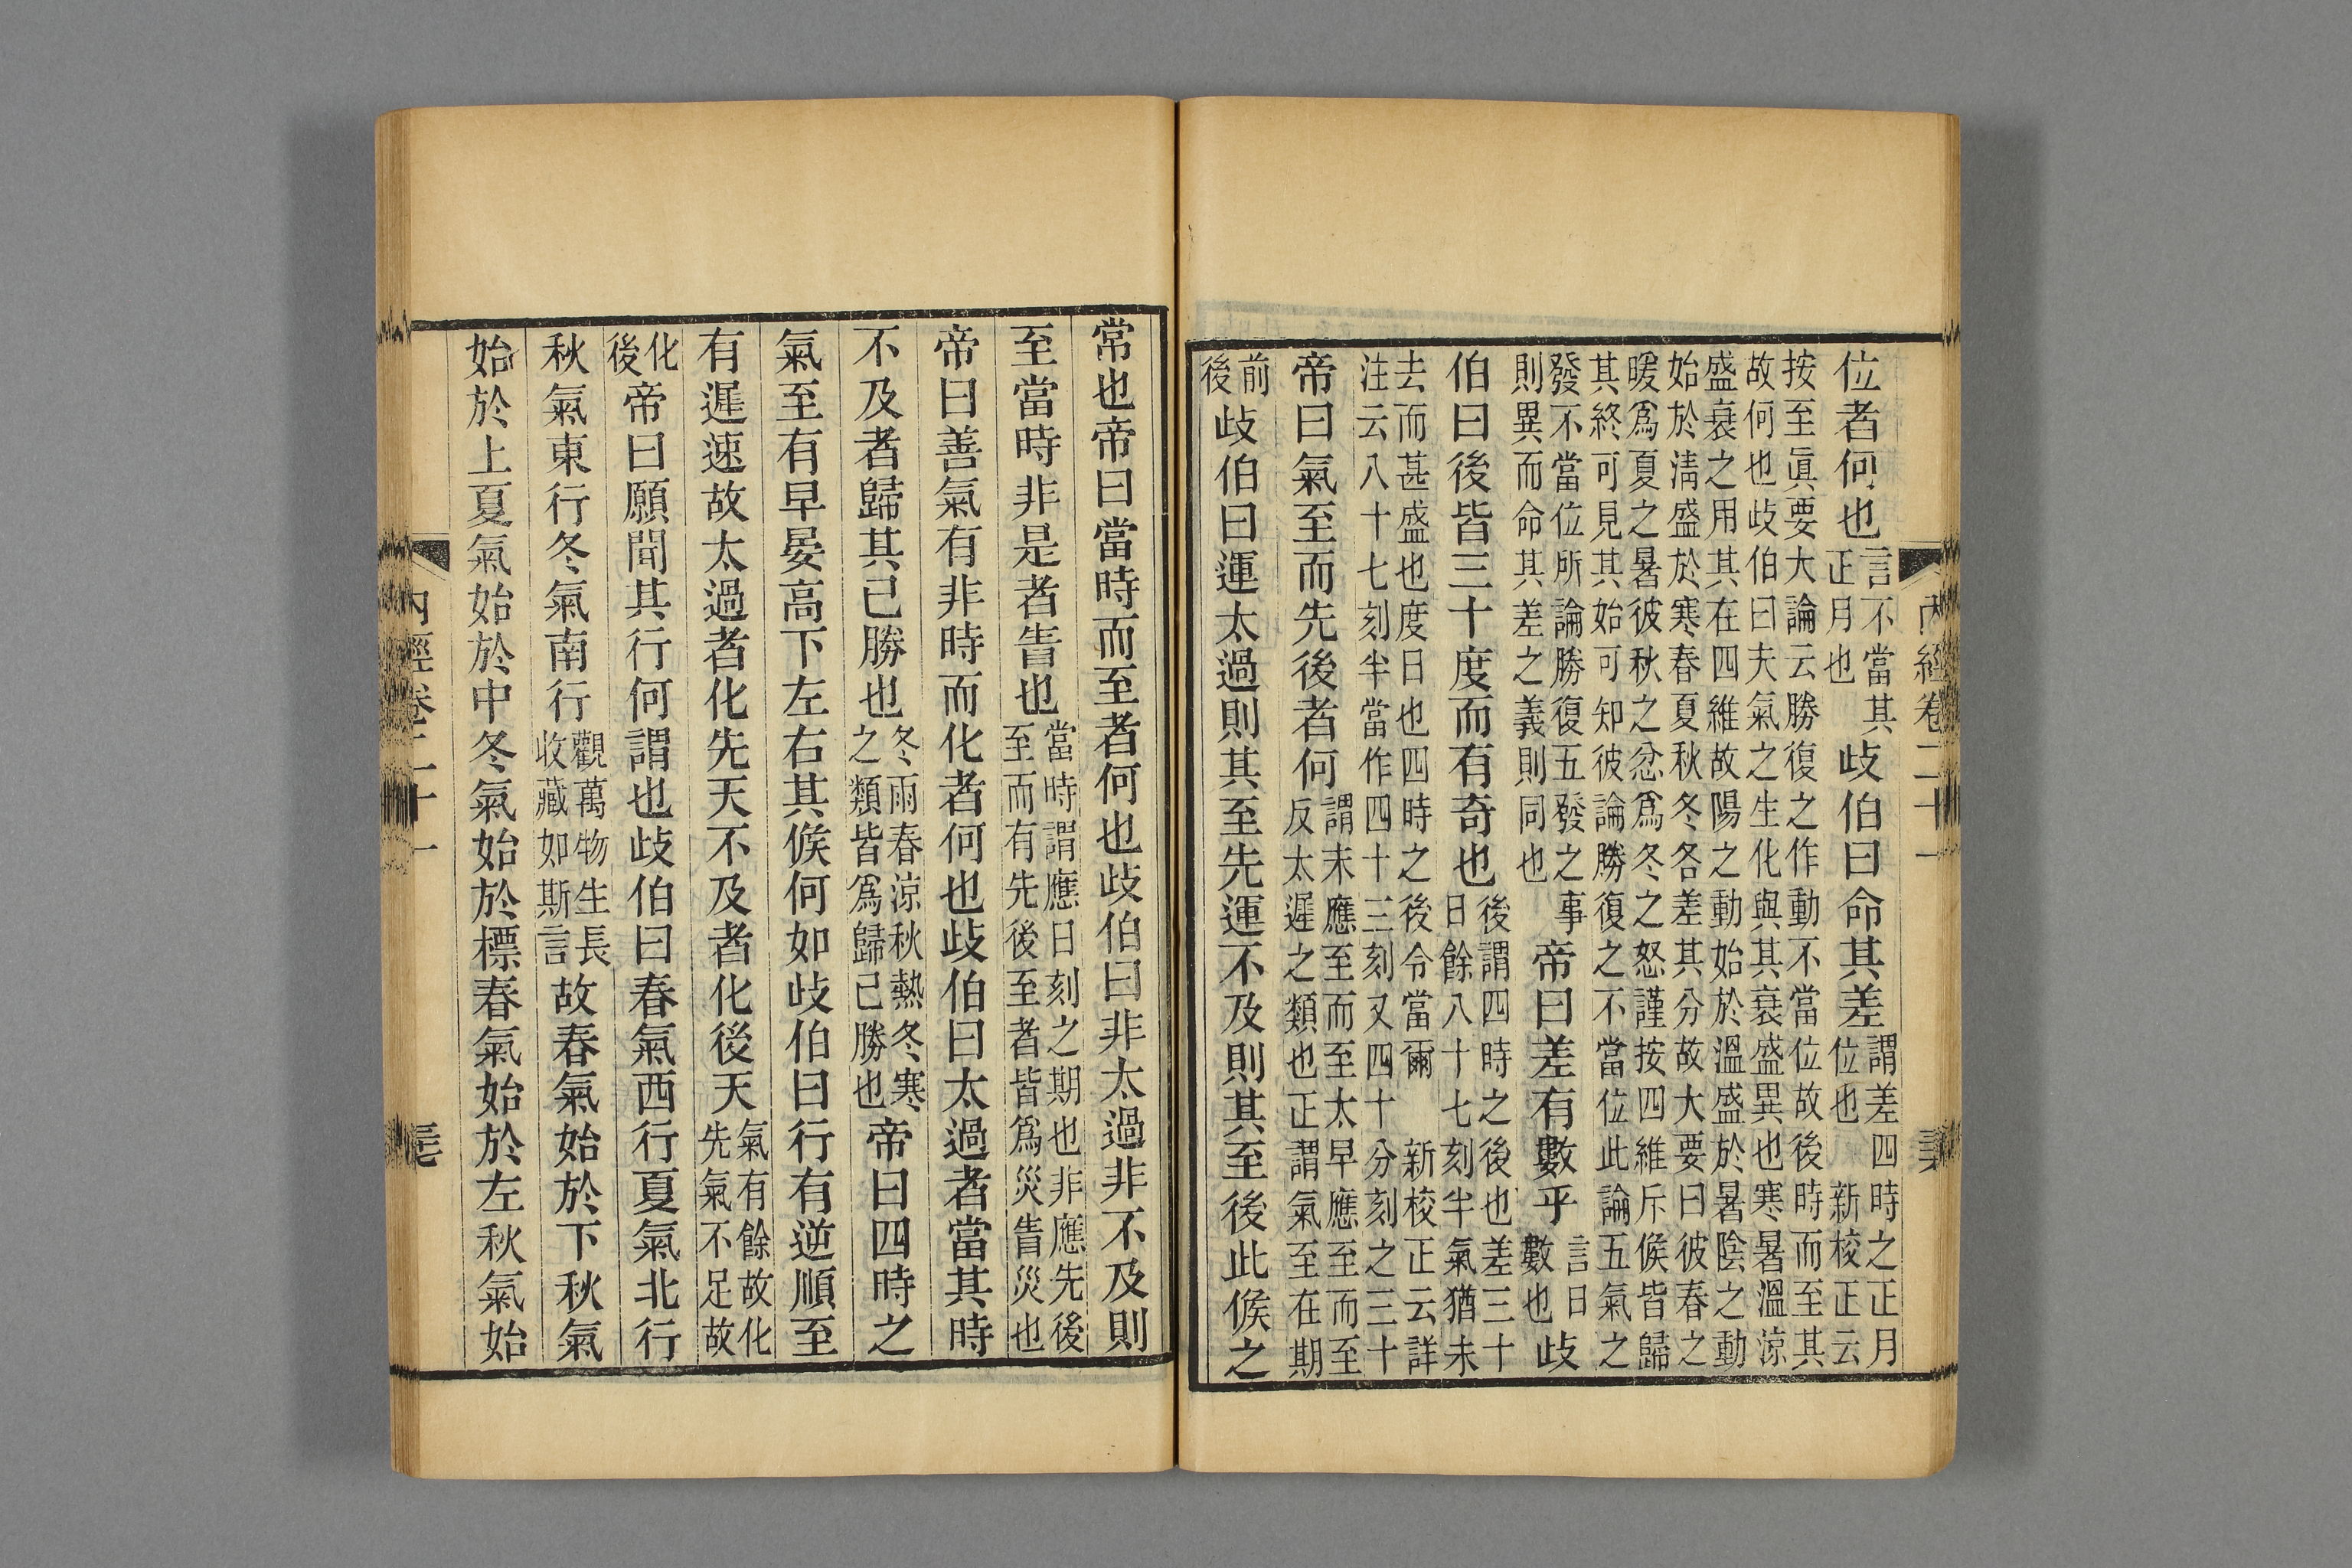 內經卷二十一
位者何也言不當其正月也歧伯曰命其差謂差四時之正月位也 新校正云
按至眞要大論云勝復之作動不當位故後時而至其
故何也歧伯曰夫氣之生化與其衰盛異也寒暑溫涼
盛衰之用其在四維故陽之動始於溫盛於暑陰之動
始於淸盛於寒春夏秋冬各差其分故大要曰彼春之
暖爲夏之暑彼秋之忿爲冬之怒謹按四維斥候皆歸
其終可見其始可知彼論勝復之不當位此論五氣之
發不當位所論勝復五發之事則異而命其差之義則同也帝曰差有數乎言日數也歧
伯曰後皆三十度而有奇也後謂四時之後也差三十日餘八十七刻半氣猶未
去而甚盛也度日也四時之後令當爾 新校正云詳
注云八十七刻半當作四十三刻又四十分刻之三十
帝曰氣至而先後者何謂未應至而至太早應至而至反太遲之類也正謂氣至在期
前後歧伯曰運太過則其至先運不及則其至後此候之
常也帝曰當時而至者何也歧伯曰非太過非不及則
至當時非是者眚也當時謂應日刻之期也非應先後至而有先後至者皆爲災眚災也
帝曰善氣有非時而化者何也歧伯曰太過者當其時
不及者歸其己勝也冬雨春涼秋熱冬寒之類皆爲歸己勝也帝曰四時之
氣至有早晏高下左右其候何如歧伯曰行有逆順至
有遲速故太過者化先天不及者化後天氣有餘故化先氣不足故
化後帝曰願聞其行何謂也歧伯曰春氣西行夏氣北行
秋氣東行冬氣南行觀萬物生長收藏如斯言故春氣始於下秋氣
始於上夏氣始於中冬氣始於標春氣始於左秋氣始
內經卷二十一